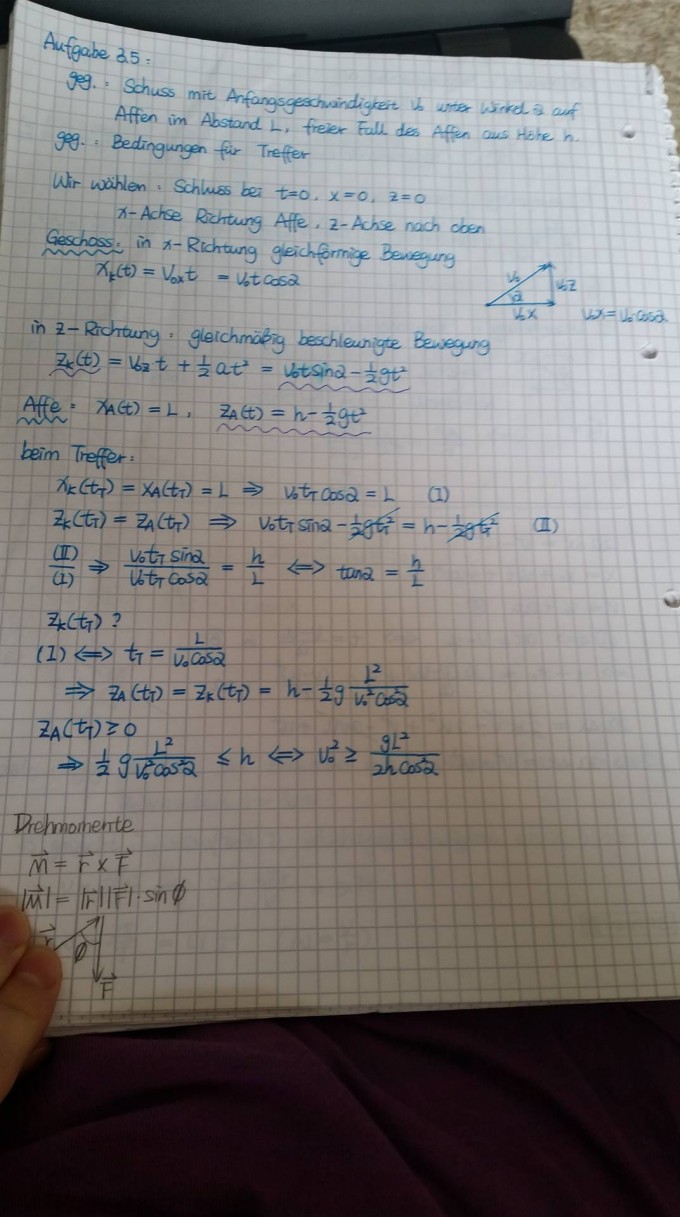 Aufgabe 3.5:
geg.: Schuss mit Anfangsgeschwindigkeit v₀ unter Winkel α auf
Affen im Abstand L, freier Fall des Affen aus Höhe h.
geg.: Bedingungen für Treffer
Wir wählen: Schluss bei t=0, x=0, z=0
x-Achse Richtung Affe, z-Achse nach oben
Geschoss: in x-Richtung gleichförmige Bewegung
xₖ(t) = v₀ₓt = v₀t cosα
v₀ v₀z α v₀x v₀x = v₀ cosα
in z-Richtung: gleichmäßig beschleunigte Bewegung
zₖ(t) = v₀z t + ½at² = v₀t sinα - ½gt²
Affe: x_A(t) = L, z_A(t) = h - ½gt²
beim Treffer:
xₖ(t_T) = x_A(t_T) = L ⇒ v₀t_T cosα = L (I)
zₖ(t_T) = z_A(t_T) ⇒ v₀t_T sinα - ½gt_T² = h - ½gt_T² (II)
(II)/(I) ⇒ v₀t_T sinα / v₀t_T cosα = h/L ⇔ tanα = h/L
zₖ(t_T)?
(I) ⇔ t_T = L / v₀cosα
⇒ z_A(t_T) = zₖ(t_T) = h - ½g L² / v₀²cos²α
z_A(t_T) ≥ 0
⇒ ½ g L² / v₀²cos²α ≤ h ⇔ v₀² ≥ gL² / 2hcos²α
Drehmomente
M⃗ = r⃗ × F⃗
|M⃗| = |r⃗||F⃗|·sin∅
r⃗ ∅
F⃗